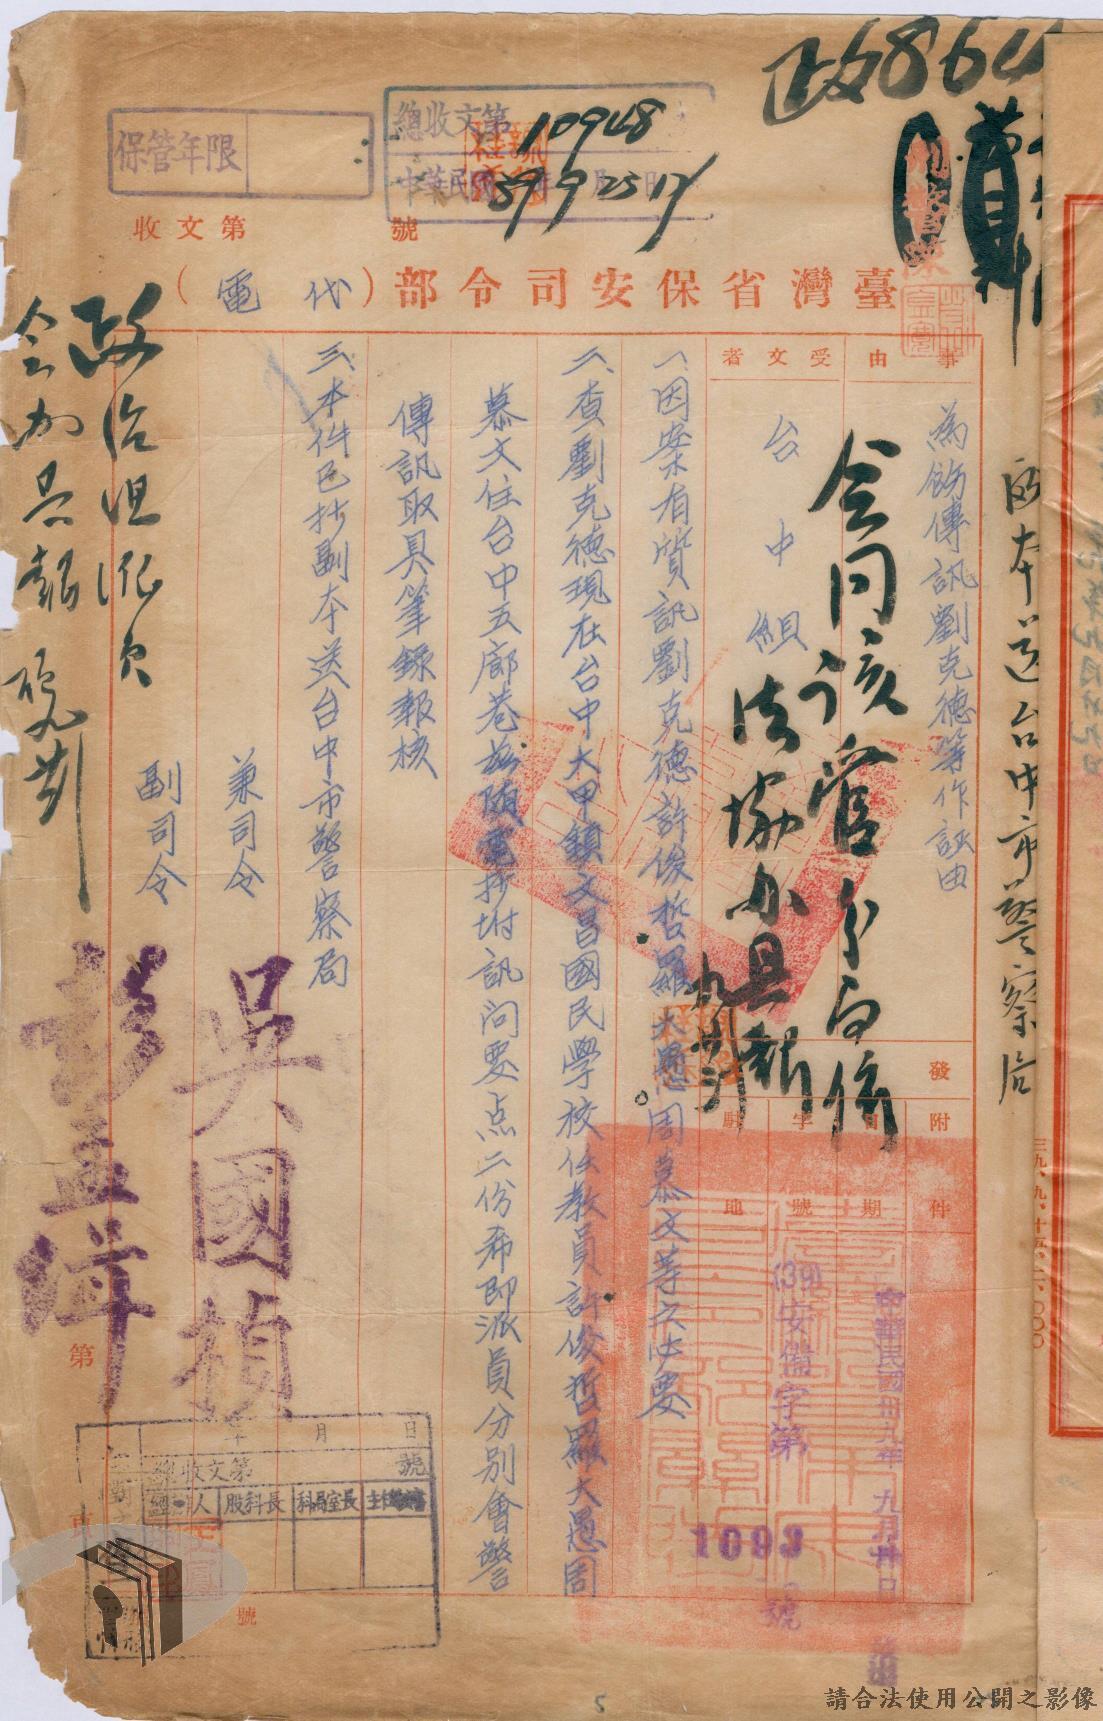 政864
保管年限
總收文第10948
中華民國39 9 25 17
收文第　號
臺灣省保安司令部（代電）
事由
為飭傳訊劉克德等作証由
受文者
台中組
發
附件
日期
字號
駐地
中華民國卅九年九月廿日
(39)安備字第1093號
副本送台中市警察局
會同該管分局
法協办具報
一、因案有質訊劉克德許俊哲羅大愚周慕文等之必要
二、查劉克德現在台中大甲鎮文昌國民學校任教員許俊哲羅大愚周
慕文住台中五廊巷茲隨電抄附訊问要点二份希即派員分別會警
傳訊取具筆錄報核
三、本件已抄副本送台中市警察局
兼司令 吳國楨
副司令 彭孟緝
年 月 日
總收文第 號
股科長
科局室長
第
號
三九、九、十五、二、〇〇〇
5
請合法使用公開之影像